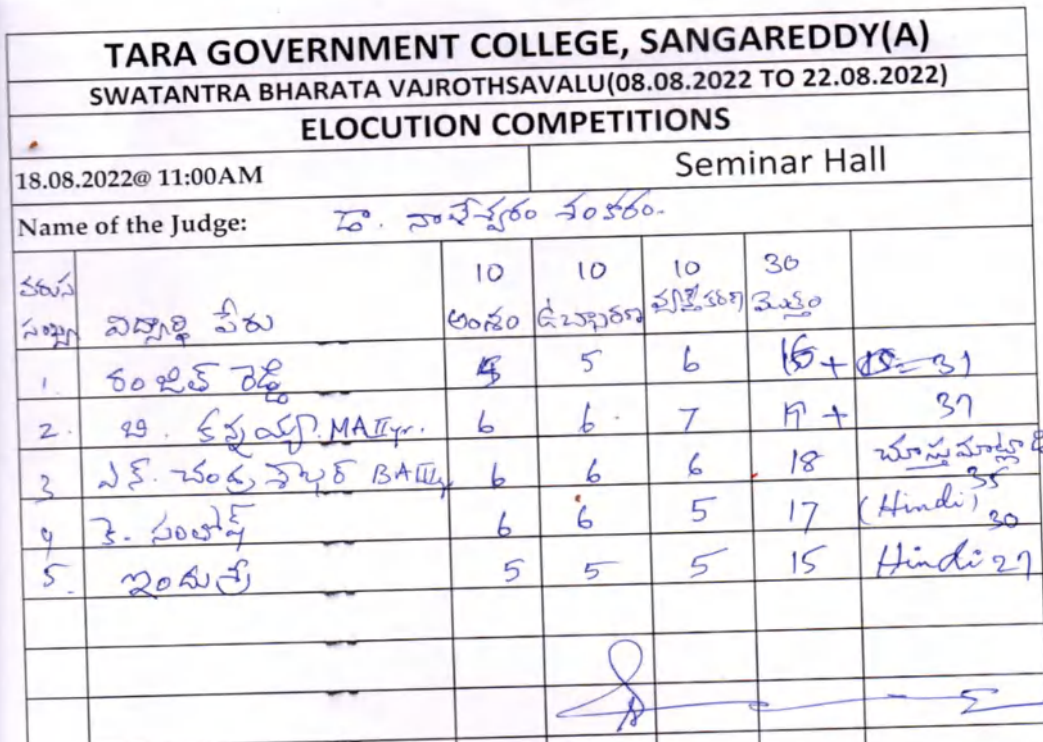 TARA GOVERNMENT COLLEGE, SANGAREDDY(A)
SWATANTRA BHARATA VAJROTHSAVALU(08.08.2022 TO 22.08.2022)
ELOCUTION COMPETITIONS
18.08.2022@ 11:00AM Seminar Hall
Name of the Judge: డా. శంకరం.
వరుస సంఖ్య విద్యార్థి పేరు 10 అంశం 10 ఉచ్ఛారణ 10 వ్యక్తీకరణ 30 మొత్తం
1. రంజిత్ రెడ్డి 5 6 + 31
2. బి. కన్నయ్య. MA IIyr. 6 6 7 19 +
3 ఎన్. చంద్ర శేఖర్ BA 6 6 6 18 35
4 కె. సంతోష్ 6 6 5 17 (Hindi) 30
5. ఇందుశ్రీ 5 5 5 15 Hindi 27